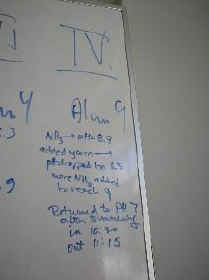 IV
Alum 9
NH3 → pH 8.9
added yarn →
pH dropped to 8.5
more NH3 added
to reach 9
Returned to pH 7
after
in 10:30
out 11:15